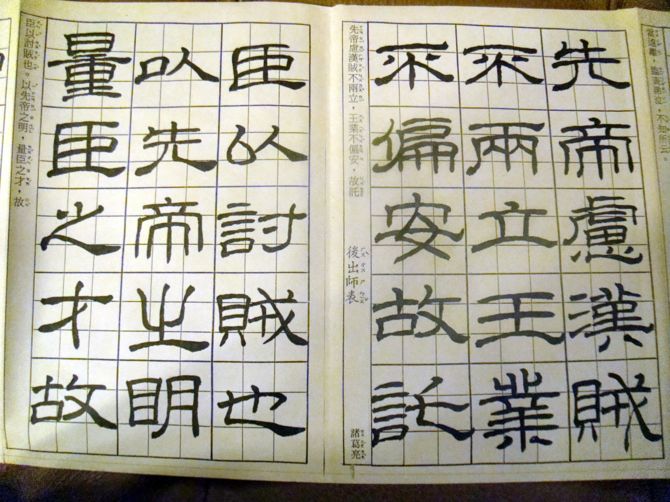 先帝慮漢賊
不兩立王業
不偏安故託
先帝慮漢賊不兩立，王業不偏安，故託
後出師表
諸葛亮
臣以討賊也
以先帝之明
量臣之才故
臣以討賊也。以先帝之明，量臣之才，故